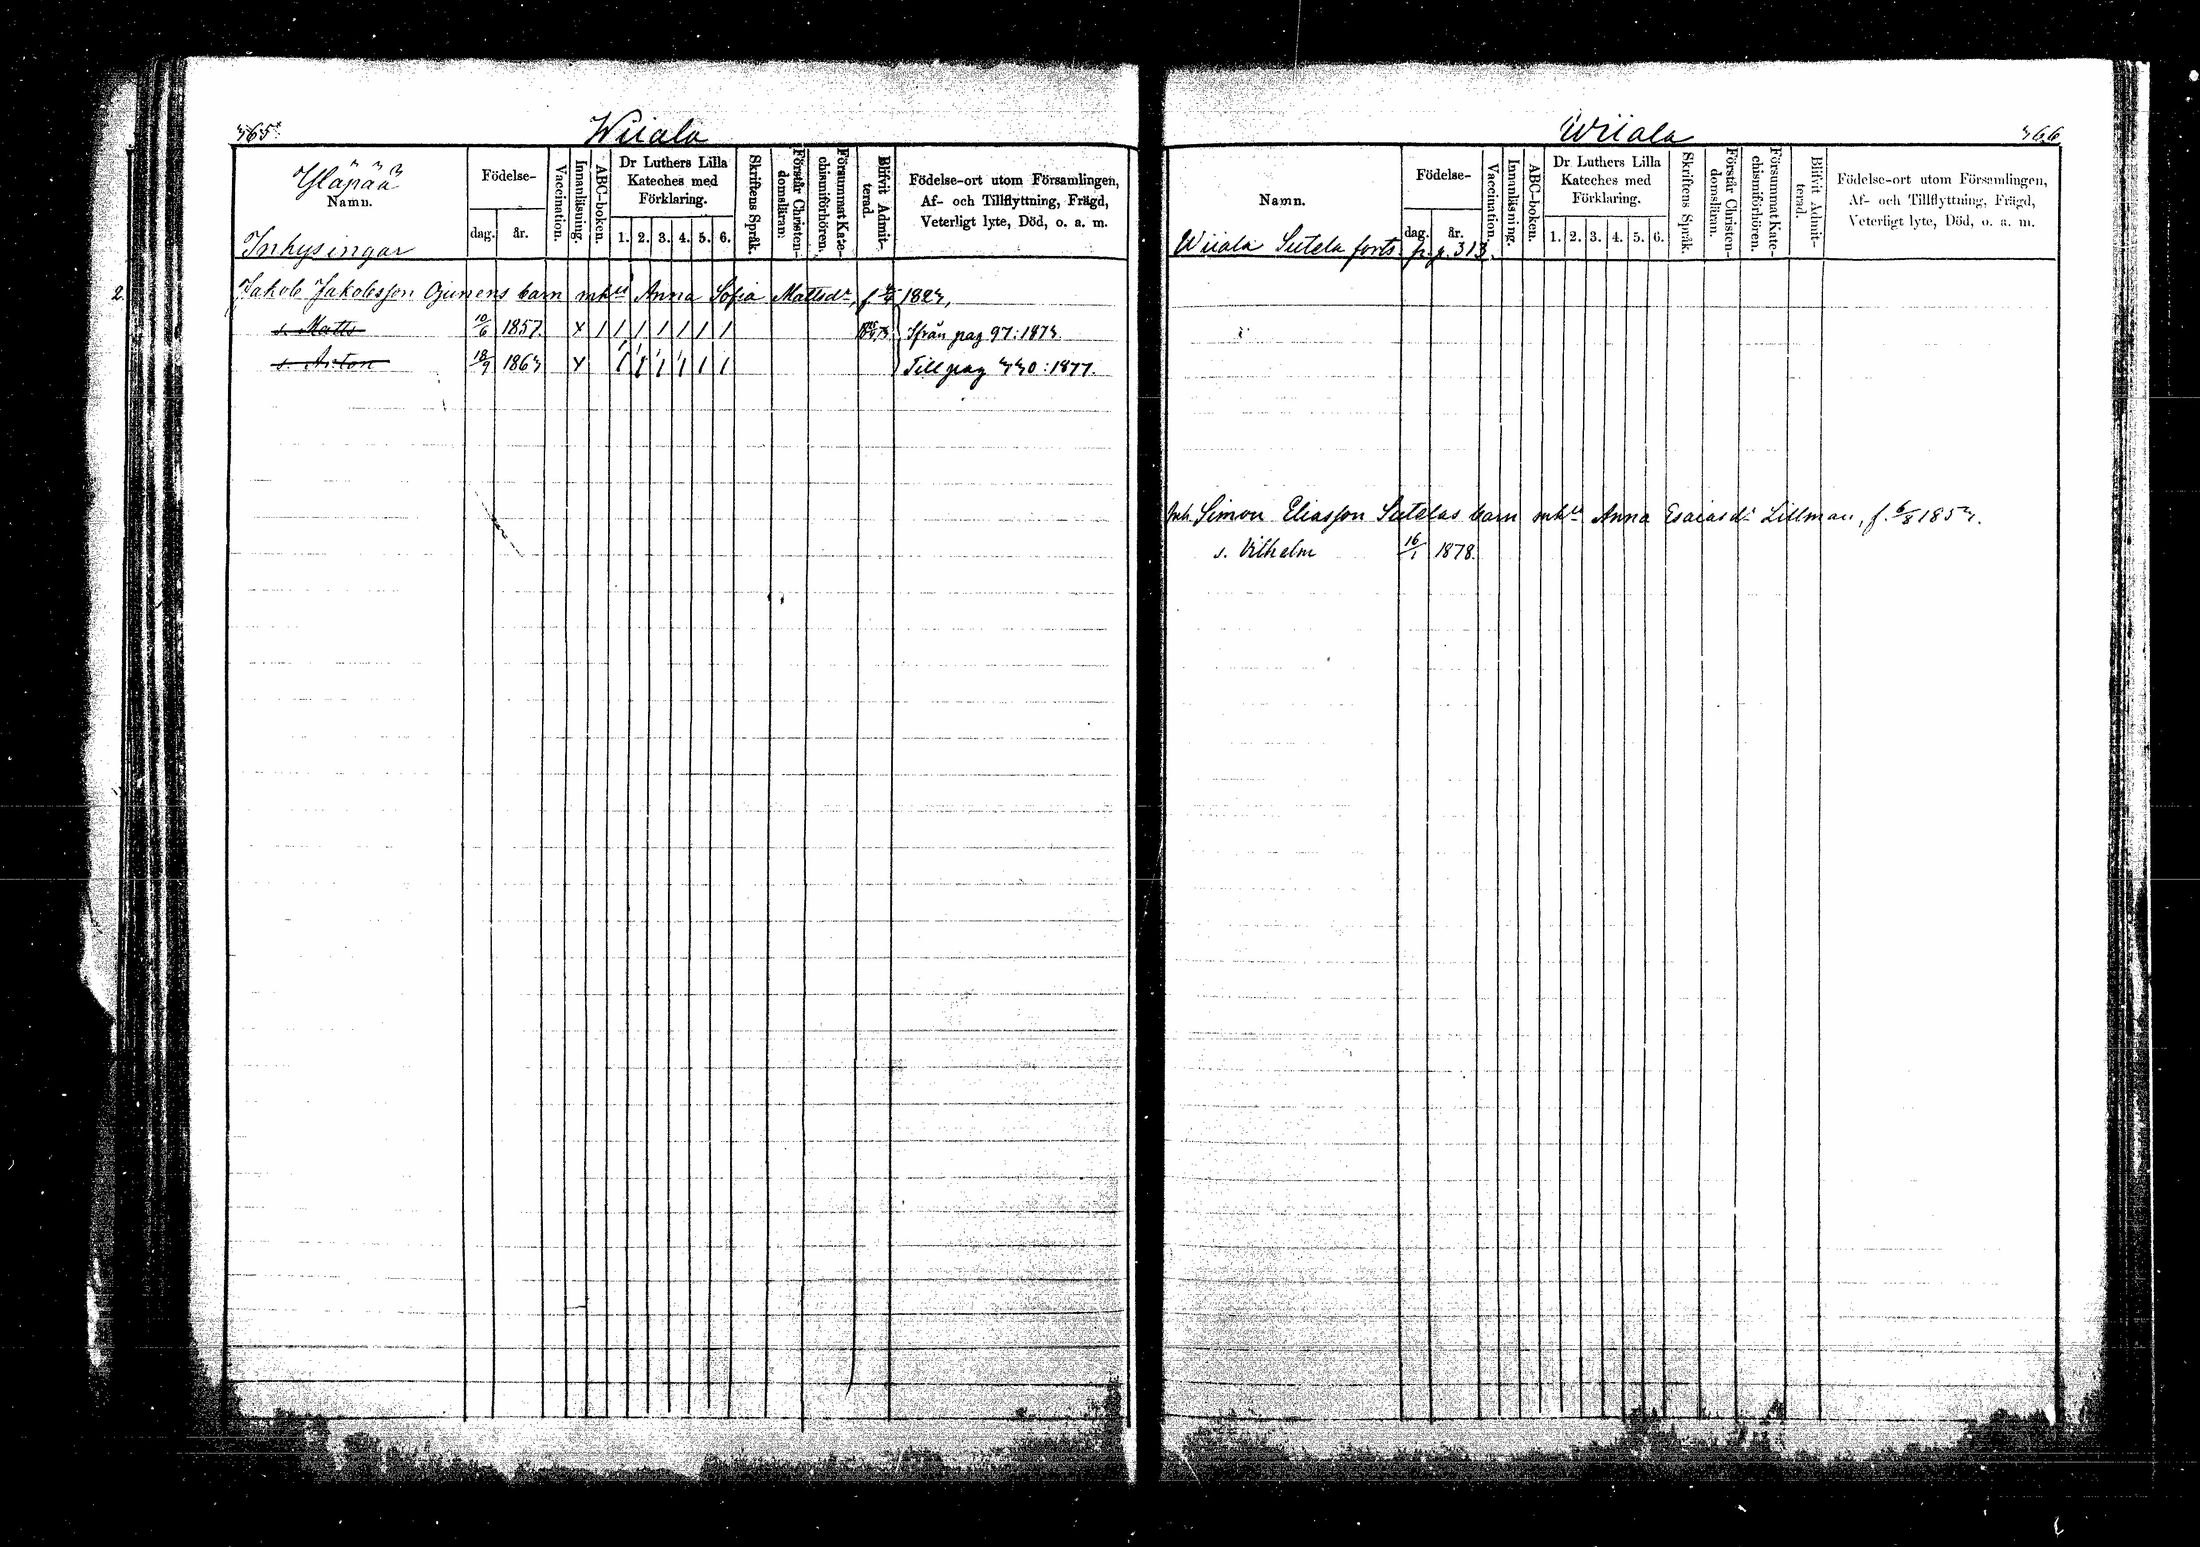 365.
Wiiala
"Yläpää"
Namn.
Inhysingar
Födelse-
dag. år.
Vaccination.
Innanläsning.
ABC-boken.
Dr Luthers Lilla
Kateches med
Förklaring.
1. 2. 3. 4. 5. 6.
Skriftens Språk.
Förstår Christen-
domsläran.
Försummat Kate-
chismiförhören.
Blifvit Admit-
terad.
Födelse-ort utom Församlingen,
Af- och Tillflyttning, Frägd,
Veterligt lyte, Död, o. a. m.
2.
Jakob Jakobsson Ojunens barn mh Anna Sofia Mattsdr, f. 1823,
s. Matts 10/6 1857. x / / / / / / / Ifrån pag 97: 1873
s. Anton 18/9 1863 x / / / / / / Till pag 330: 1877.
Wiiala
366
Namn.
Wiiala Sutela forts. p. g. 313.
Födelse-
dag. år.
Vaccination.
Innanläsning.
ABC-boken.
Dr Luthers Lilla
Kateches med
Förklaring.
1. 2. 3. 4. 5. 6.
Skriftens Språk.
Förstår Christen-
domsläran.
Försummat Kate-
chismiförhören.
Blifvit Admit-
terad.
Födelse-ort utom Församlingen,
Af- och Tillflyttning, Frägd,
Veterligt lyte, Död, o. a. m.
Inh. Simon Eliasson Sutelas barn mh Anna Esaiasdr Lillman, f. 6/8 1853.
s. Vilhelm 16/1 1878.